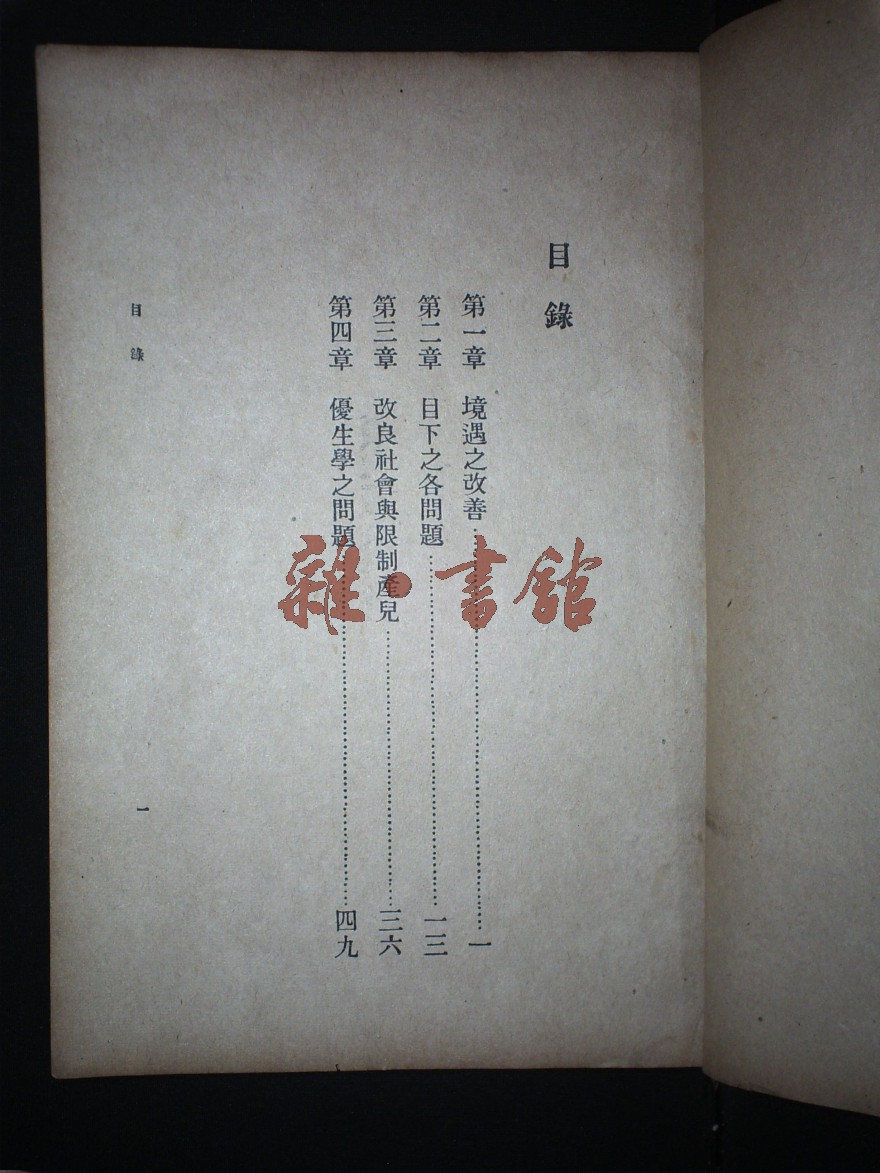 目錄
第一章 境遇之改善……………一
第二章 目下之各問題……………一三
第三章 改良社會與限制產兒……………三六
第四章 優生學之問題……………四九
目錄
一
雜·書館